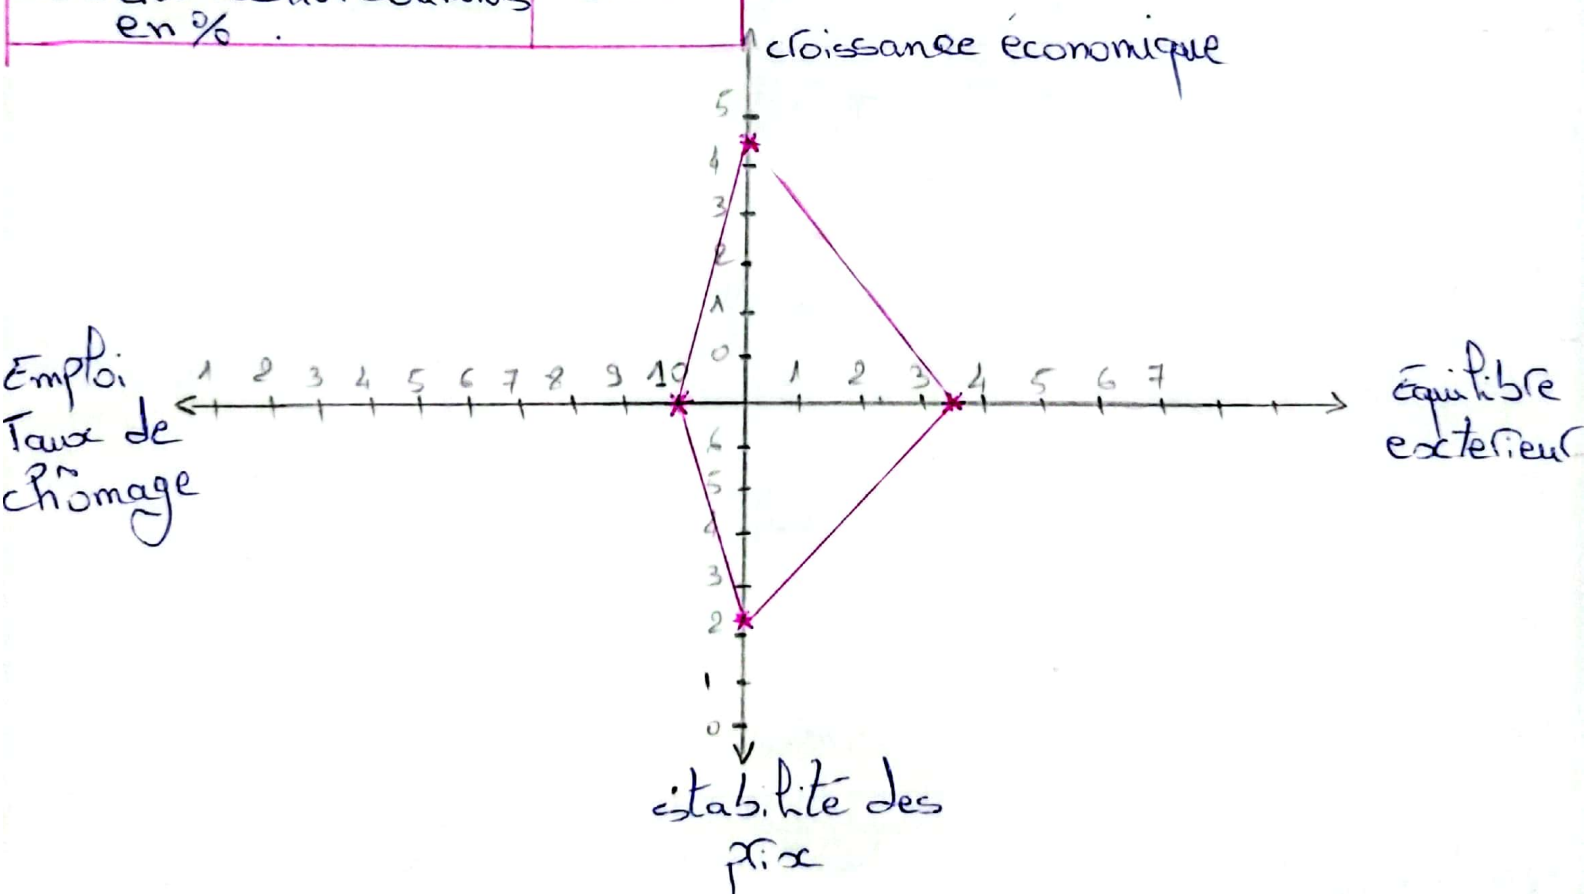 en %.
croissance économique
5
4
3
2
1
0
Emploi
Taux de
chômage
1 2 3 4 5 6 7 8 9 10
1 2 3 4 5 6 7
équilibre
exterieur
6
5
4
3
2
1
0
stabilité des
prix